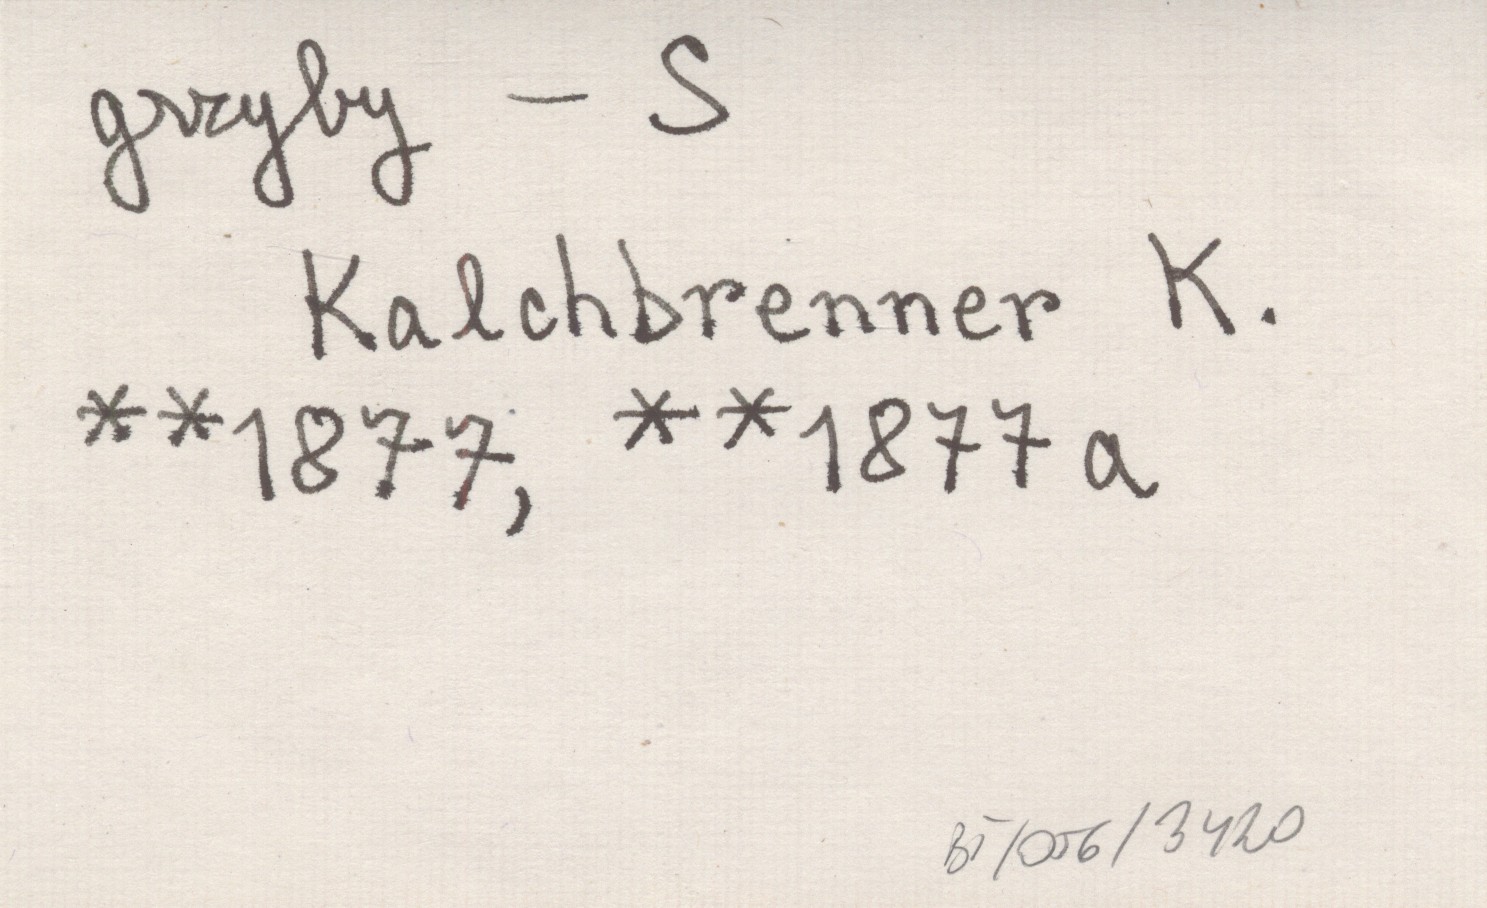 grzyby – S
Kalchbrenner K.
**1877, **1877a
BŻ/056/3420